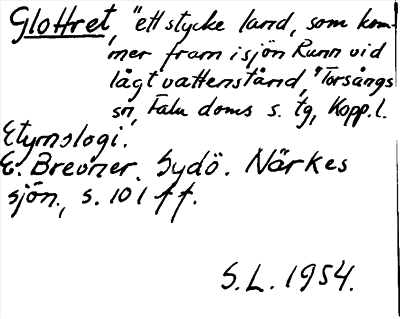 Glottret, "ett stycke land, som kom-
mer fram i sjön Runn vid
lågt vattenstånd," Torsångs
sn, Falu doms s. tg, Kopp. l.
Etymologi.
E. Brevner. Sydö. Närkes
sjön., s. 101 ff.
S.L. 1954.